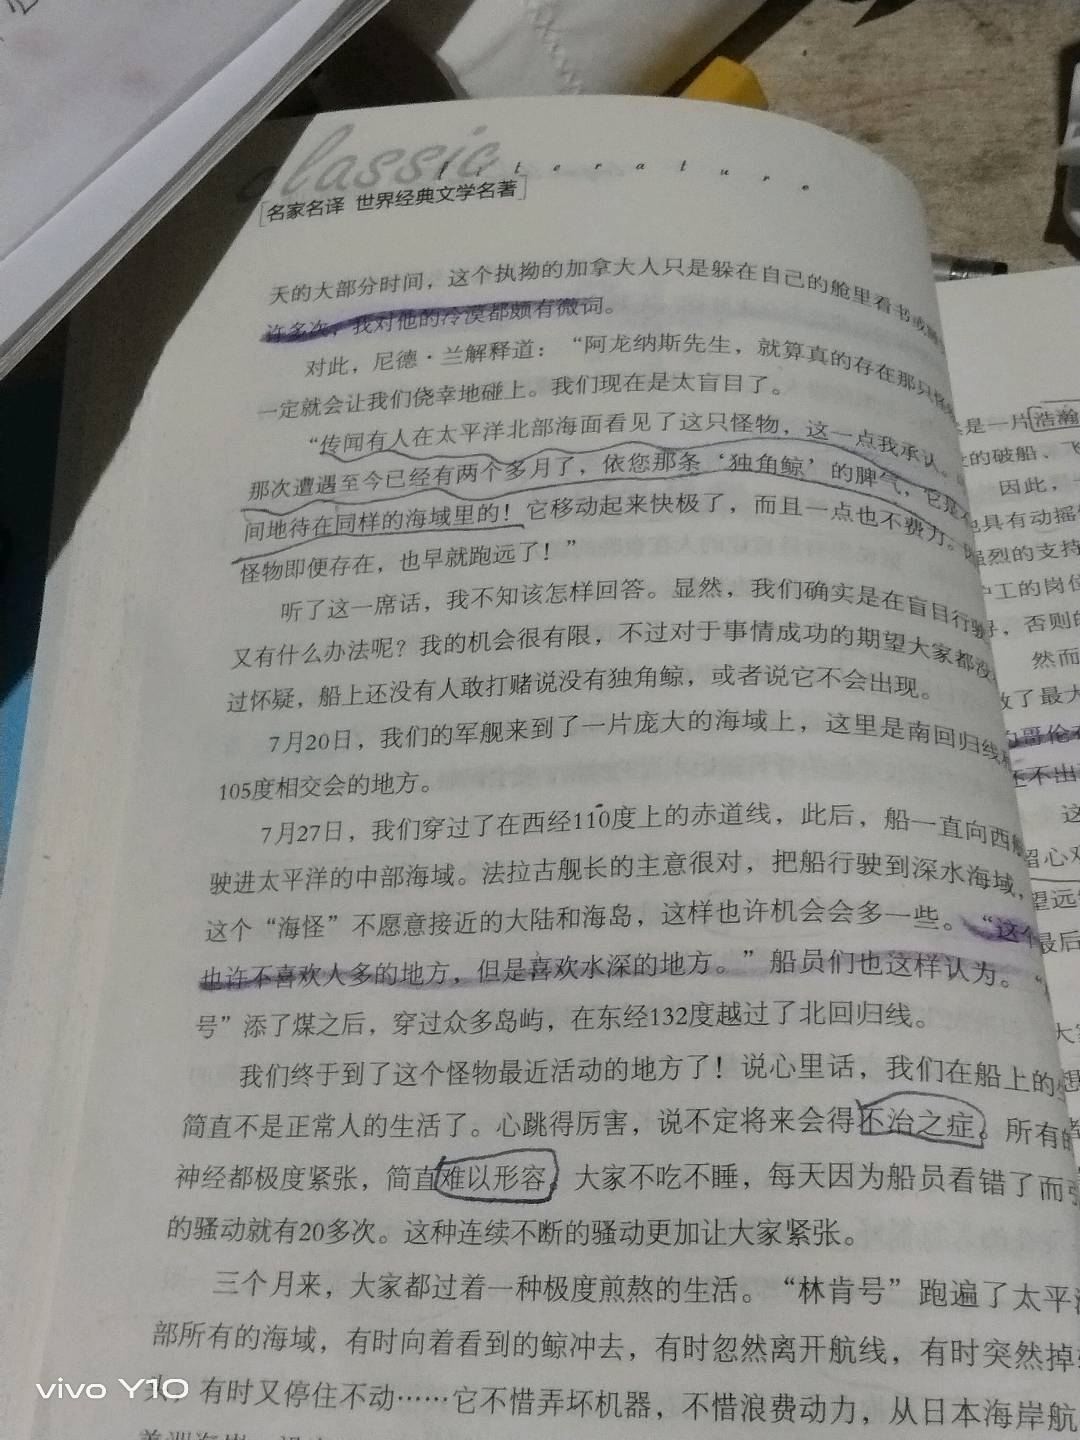 classic
literature
名家名译 世界经典文学名著
天的大部分时间，这个执拗的加拿大人只是躲在自己的舱里看书或
许多次，我对他的冷漠都颇有微词。
对此，尼德·兰解释道：“阿龙纳斯先生，就算真的存在那只怪
一定就会让我们侥幸地碰上。我们现在是太盲目了。
“传闻有人在太平洋北部海面看见了这只怪物，这一点我承认。
那次遭遇至今已经有两个多月了，依您那条‘独角鲸’的脾气，它是不
间地待在同样的海域里的！它移动起来快极了，而且一点也不费力。
怪物即便存在，也早就跑远了！”
听了这一席话，我不知该怎样回答。显然，我们确实是在盲目行驶
又有什么办法呢？我的机会很有限，不过对于事情成功的期望大家都没
过怀疑，船上还没有人敢打赌说没有独角鲸，或者说它不会出现。
7月20日，我们的军舰来到了一片庞大的海域上，这里是南回归线
105度相交会的地方。
7月27日，我们穿过了在西经110度上的赤道线，此后，船一直向西
驶进太平洋的中部海域。法拉古舰长的主意很对，把船行驶到深水海域，
这个“海怪”不愿意接近的大陆和海岛，这样也许机会会多一些。“这个
也许不喜欢人多的地方，但是喜欢水深的地方。”船员们也这样认为。“
号”添了煤之后，穿过众多岛屿，在东经132度越过了北回归线。
我们终于到了这个怪物最近活动的地方了！说心里话，我们在船上的
简直不是正常人的生活了。心跳得厉害，说不定将来会得不治之症。所有的
神经都极度紧张，简直难以形容。大家不吃不睡，每天因为船员看错了而
的骚动就有20多次。这种连续不断的骚动更加让大家紧张。
三个月来，大家都过着一种极度煎熬的生活。“林肯号”跑遍了太平
部所有的海域，有时向着看到的鲸冲去，有时忽然离开航线，有时突然掉
头，有时又停住不动……它不惜弄坏机器，不惜浪费动力，从日本海岸航
是一片浩瀚
的破船、
因此，
具有动摇
强烈的支持
工的岗位
，否则的
然而
了最大
哥伦
还不出
这
留心观
望远
最后
大
vivo Y10